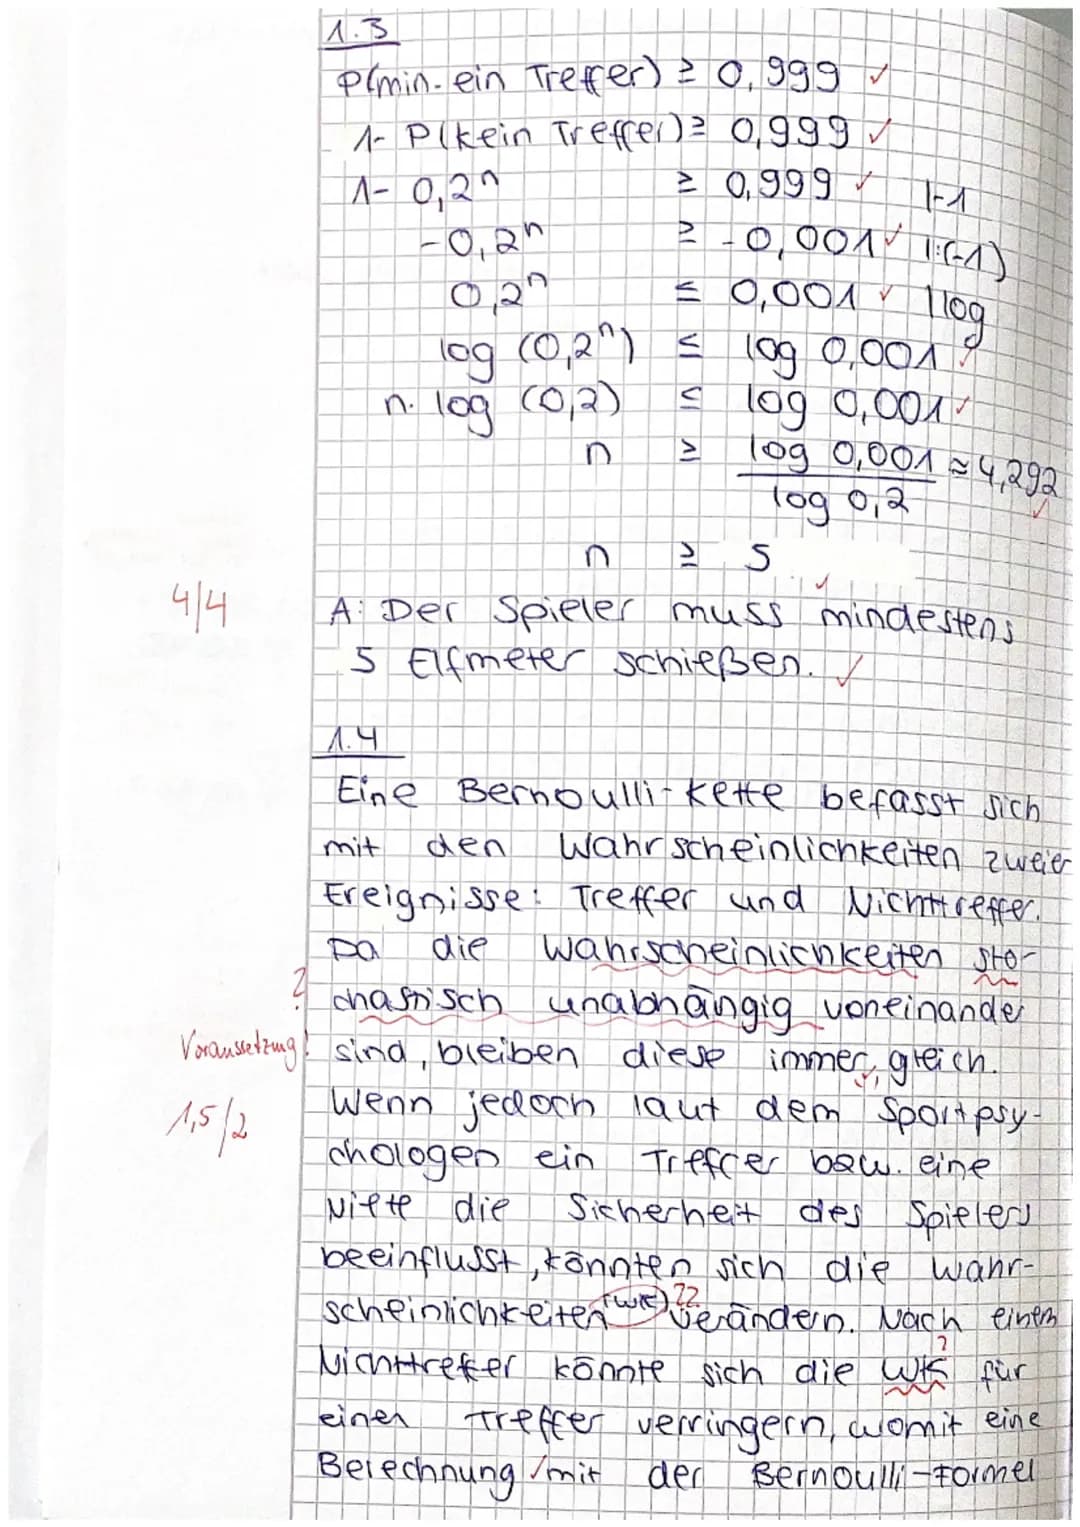 1.3
P(min. ein Treffer) ≥ 0,999 ✓
1- P(kein Treffer) ≥ 0,999 ✓
1- 0,2ⁿ ≥ 0,999 ✓ |-1
-0,2ⁿ ≥ -0,001 ✓ |:(-1)
0,2ⁿ ≤ 0,001 ✓ |log
log (0,2ⁿ) ≤ log 0,001 ✓
n. log (0,2) ≤ log 0,001 ✓
n ≥ log 0,001 ≈ 4,292
log 0,2 ✓
n ≥ 5
4/4 A: Der Spieler muss mindestens
5 Elfmeter schießen. ✓
1.4
Eine Bernoulli-Kette befasst sich
mit den Wahrscheinlichkeiten zweier
Ereignisse: Treffer und Nichttreffer.
Da die Wahrscheinlichkeiten sto-
? chastisch unabhängig voneinander
Voraussetzung! sind, bleiben diese immer gleich.
1,5/2 Wenn jedoch laut dem Sportpsy-
chologen ein Treffer bzw. eine
Niete die Sicherheit des Spielers
beeinflusst, könnten sich die Wahr-
scheinlichkeiten (WK) ?? verändern. Nach einem
Nichttreffer könnte sich die WK ? für
einen Treffer verringern, womit eine
Berechnung ✓ mit der Bernoulli-Formel